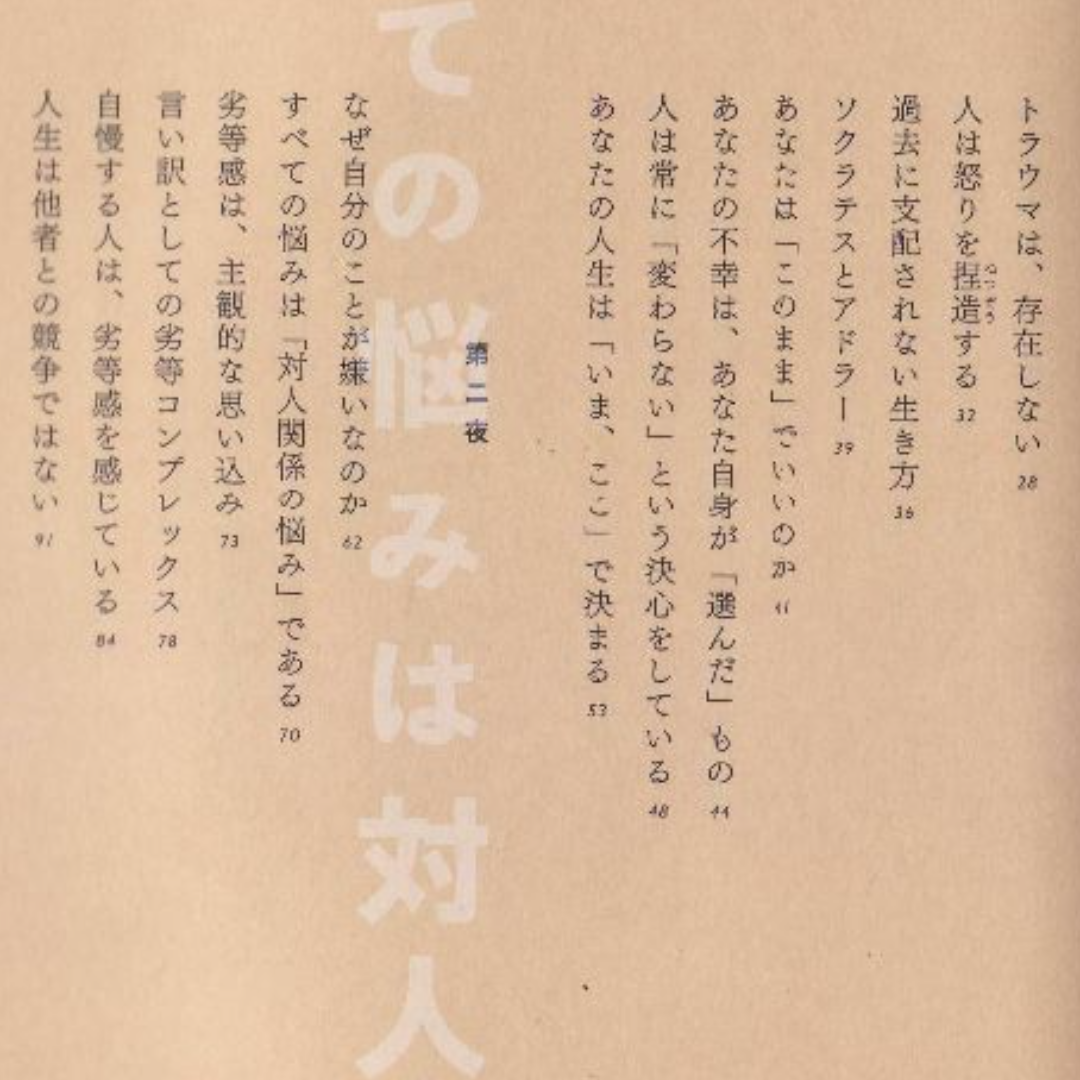 トラウマは、存在しない 28
人は怒りを捏造する 32
過去に支配されない生き方 36
ソクラテスとアドラー 39
あなたは「このまま」でいいのか 41
あなたの不幸は、あなた自身が「選んだ」もの 44
人は常に「変わらない」という決心をしている 48
あなたの人生は「いま、ここ」で決まる 53
第二夜
ての悩みは対人
なぜ自分のことが嫌いなのか 62
すべての悩みは「対人関係の悩み」である 70
劣等感は、主観的な思い込み 73
言い訳としての劣等コンプレックス 78
自慢する人は、劣等感を感じている 84
人生は他者との競争ではない 91